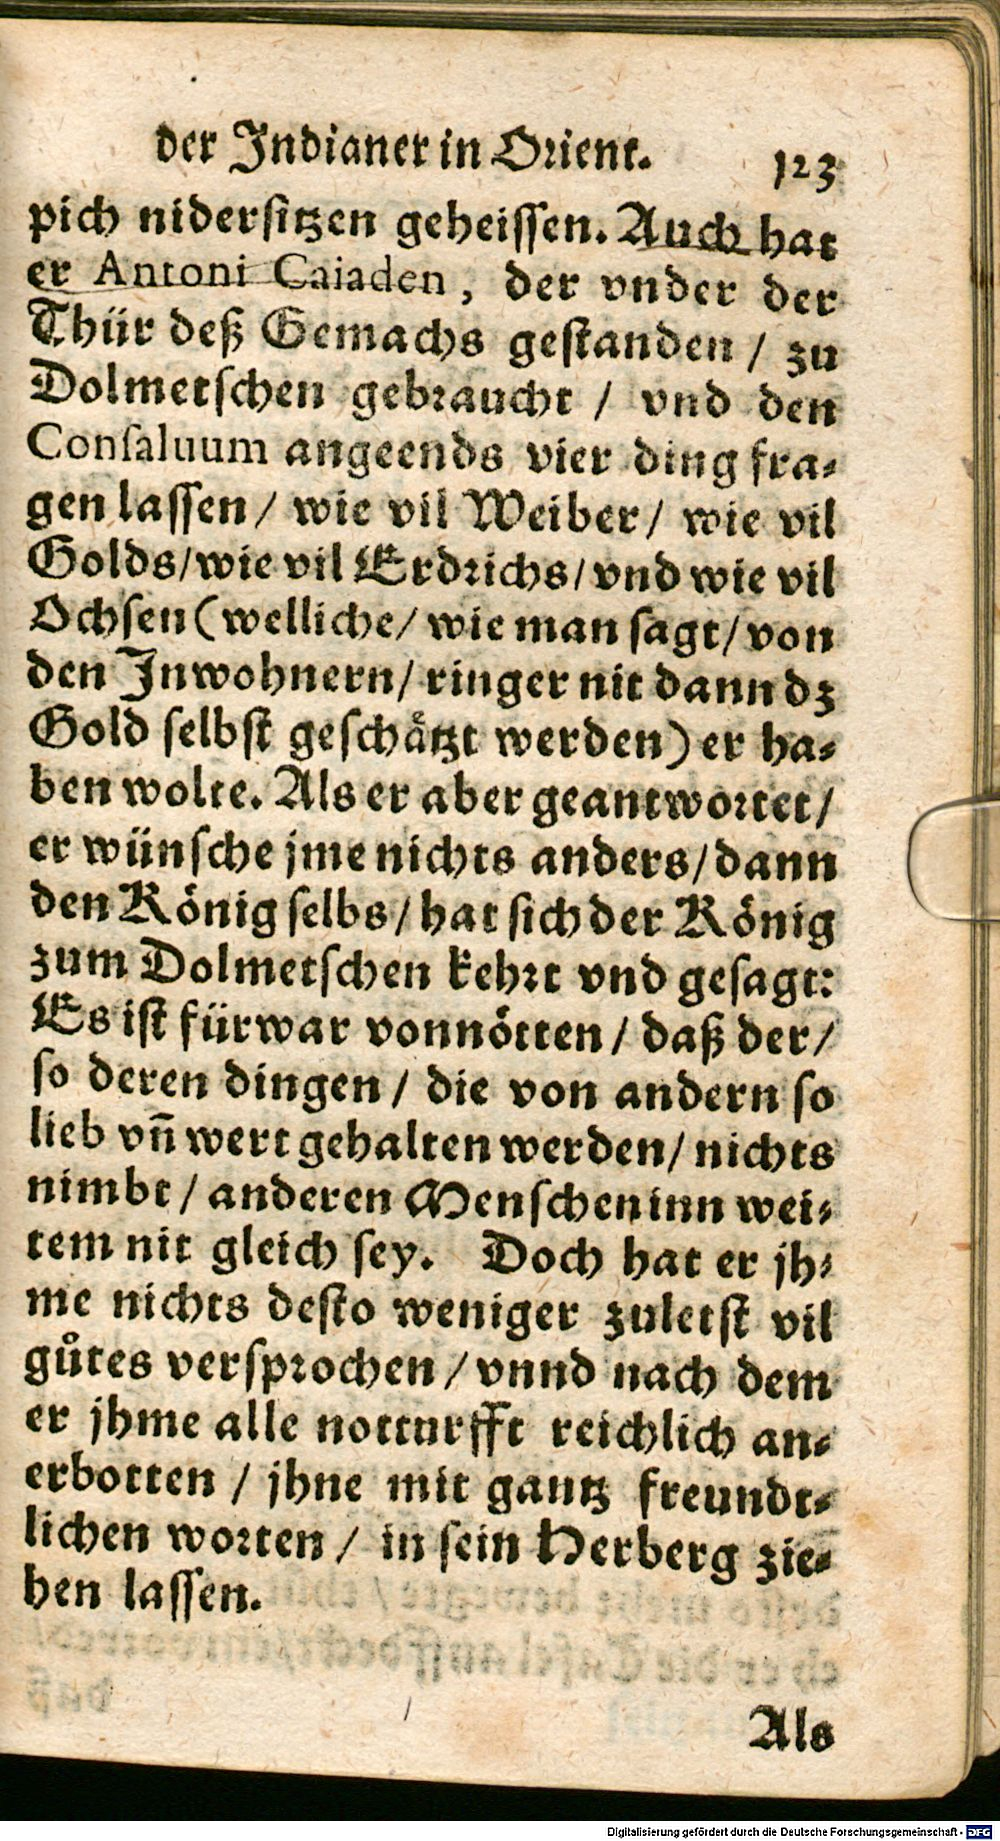 der Indianer in Orient. 123
pich nidersitzen geheissen. Auch hat
er Antoni Caiaden, der vnder der
Thür deß Gemachs gestanden / zu
Dolmetschen gebraucht / vnd den
Consaluum angeends vier ding fra-
gen lassen / wie vil Weiber / wie vil
Golds / wie vil Erdrichs / vnd wie vil
Ochsen (welliche / wie man sagt / von
den Inwohnern / ringer nit dann dz
Gold selbst geschaͤtzt werden) er ha-
ben wolte. Als er aber geantwortet /
er wünsche jme nichts anders / dann
den König selbs / hat sich der König
zum Dolmetschen kehrt vnd gesagt:
Es ist fürwar vonnötten / daß der /
so deren dingen / die von andern so
lieb vñ wert gehalten werden / nichts
nimbt / anderen Menschen inn wei-
tem nit gleich sey. Doch hat er jh-
me nichts desto weniger zuletst vil
gůtes versprochen / vnnd nach dem
er jhme alle notturfft reichlich an-
erbotten / jhne mit gantz freundt-
lichen worten / in sein Herberg zie-
hen lassen.
Als
Digitalisierung gefördert durch die Deutsche Forschungsgemeinschaft - DFG